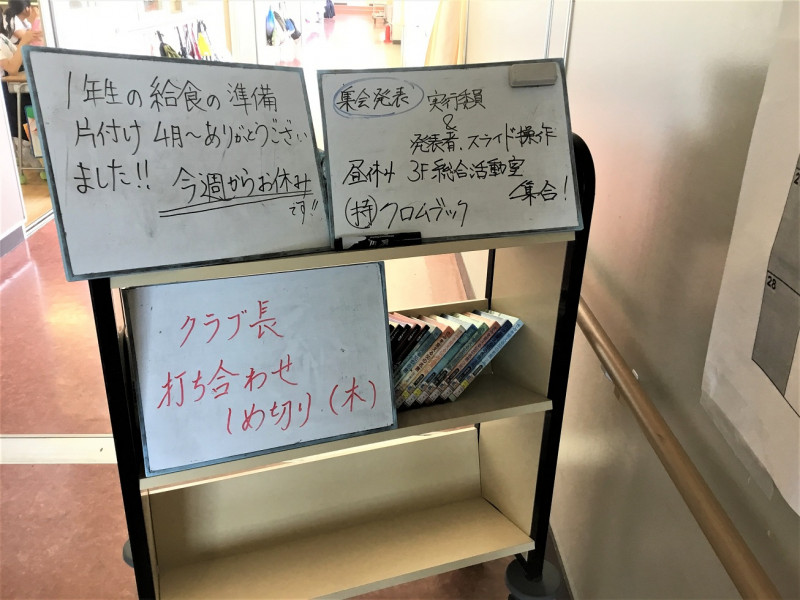 1年生の給食の準備
片付け 4月〜ありがとうござい
ました!! 今週からお休み
です!!
集会発表 実行委員
&
発表者、スライド操作
昼休み 3F総合活動室
集合!
(持)クロムブック
クラブ長
打ち合わせ
しめ切り.(木)
28